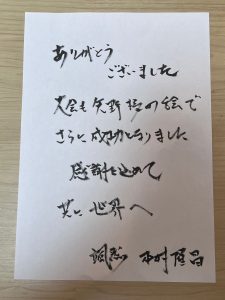 ありがとう
ございました
大会も矢野様の絵で
さらに成功となりました
感謝を込めて
共に世界へ
村 隆昌